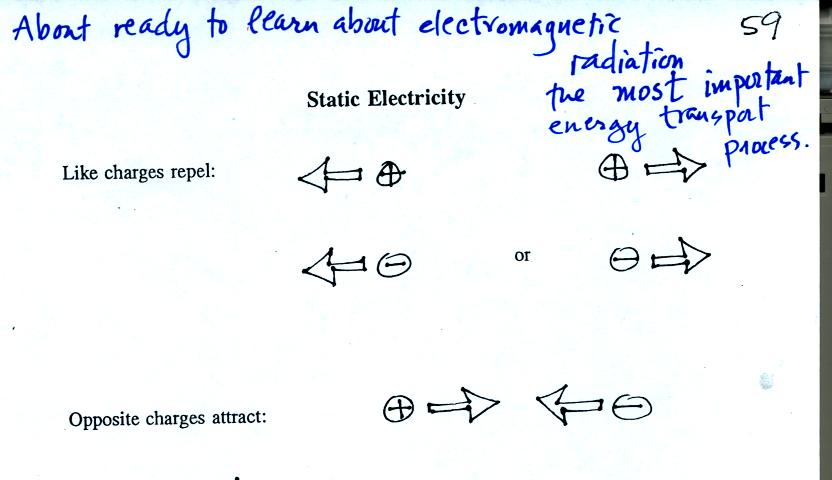 About ready to learn about electromagnetic 59
radiation
the most important
energy transport
process.
Static Electricity
Like charges repel: ⊕ ⊕
⊖ or ⊖
Opposite charges attract: ⊕ ⊖